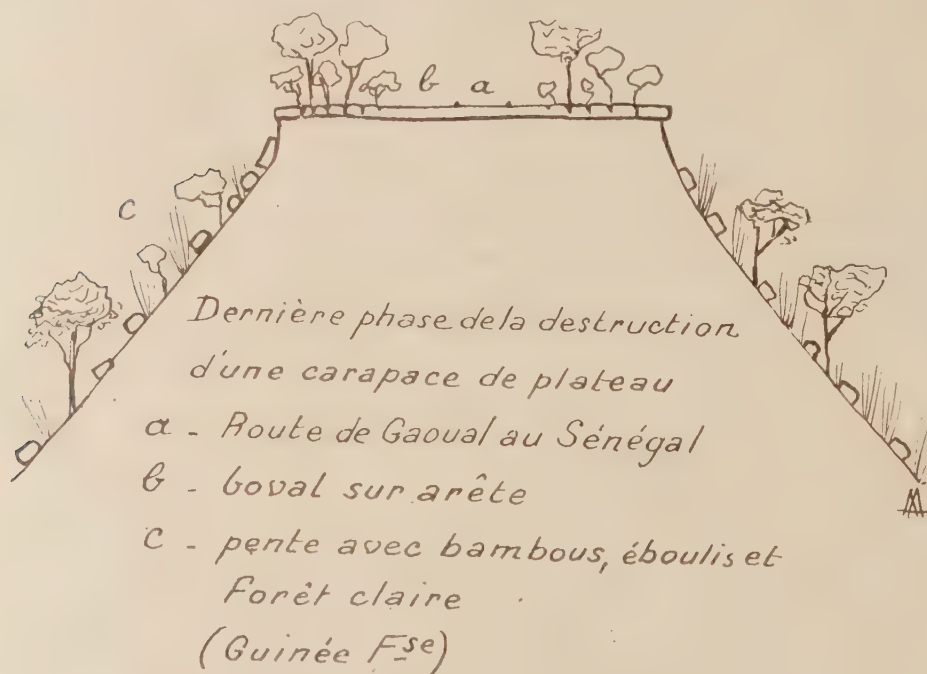 b a
c
Dernière phase de la destruction
d'une carapace de plateau
a - Route de Gaoual au Sénégal
b - boval sur arête
C - pente avec bambous, éboulis et
Forêt claire
(Guinée Fse)